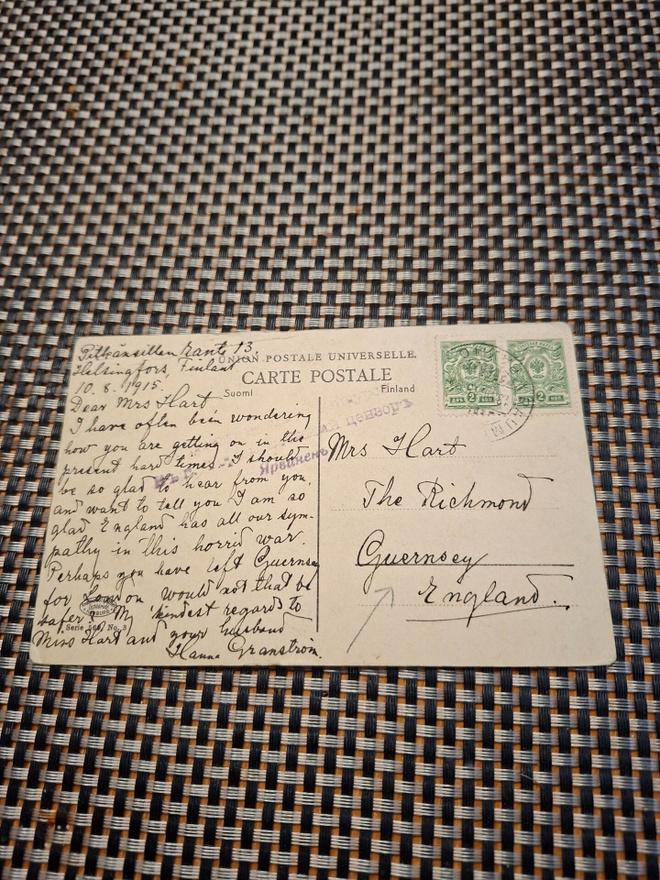 Pitkänsillan ranta 13.
Helsingfors, Finland
10. 8. 1915.
UNION POSTALE UNIVERSELLE.
CARTE POSTALE
Suomi
Finland
Dear Mrs Hart
I have often been wondering
how you are getting on in this
present hard times. I should
be so glad to hear from you,
and want to tell you I am so
glad England has all our sym-
pathy in this horrid war.
Perhaps you have left Guernsey
for London would not that be
safer? My kindest regards to
Miss Hart and your husband
Hanna Granström.
Serie No. 3
цензоръ
Ярвиненъ
2 КОП. 2 КОП.
Mrs Hart
The Richmond
Guernsey
England.